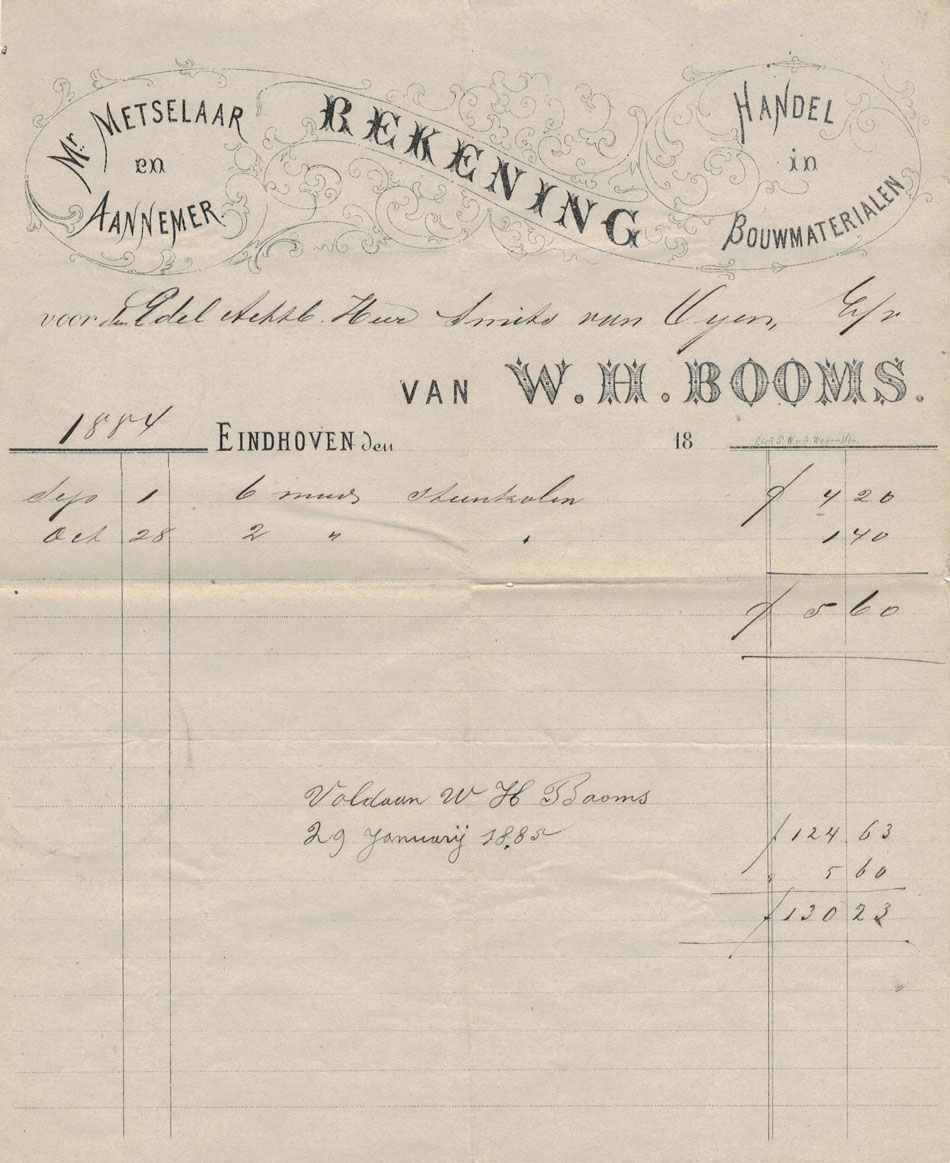 Mr. METSELAAR
en
AANNEMER.
REKENING
HANDEL
in
BOUWMATERIALEN
voor den Edel Achtb. Heer Smits van Oyen, Esqr
VAN W. H. BOOMS.
1884 EINDHOVEN den 18
Sep 1 6 mud steenkolen f 4 20
Oct 28 2 " " 1 40
f 5 60
Voldaan W H Booms
29 Januarij 1885 f 124 63
" 5 60
f 130 23